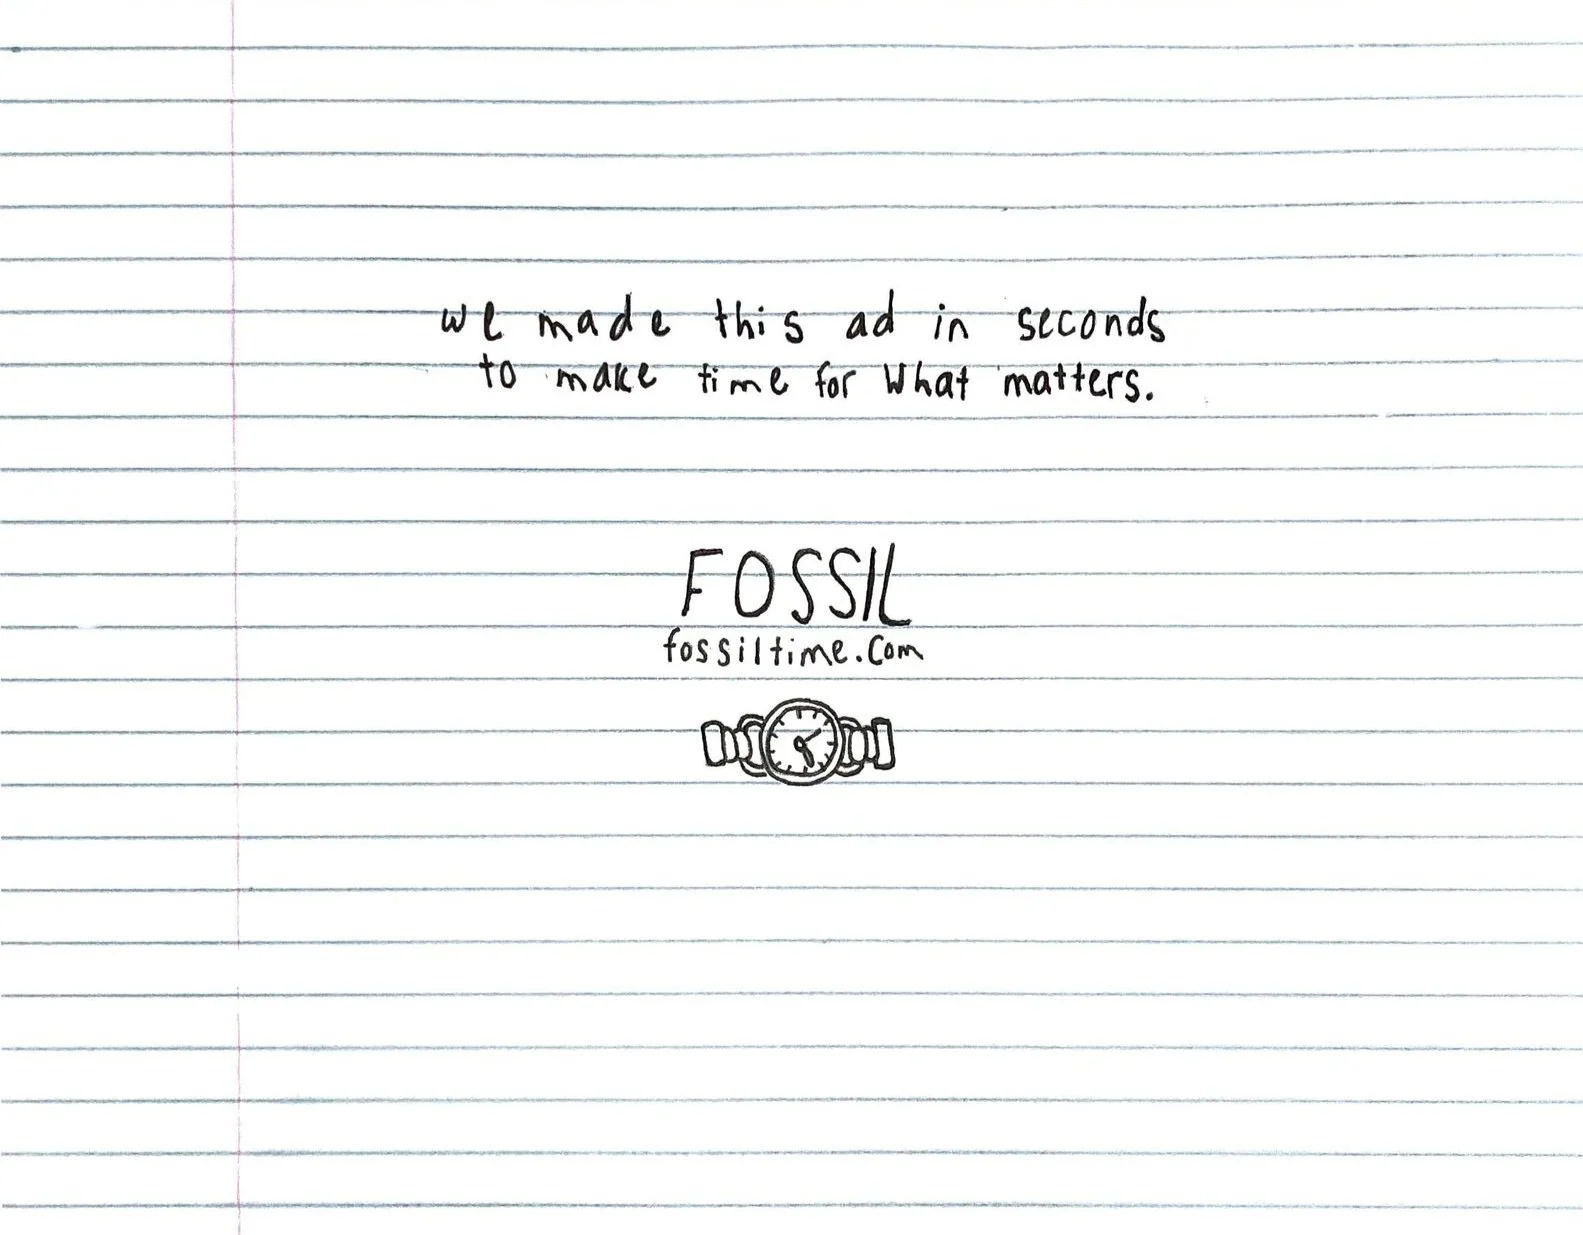 we made this ad in seconds
to make time for What matters.
FOSSIL
fossiltime.com